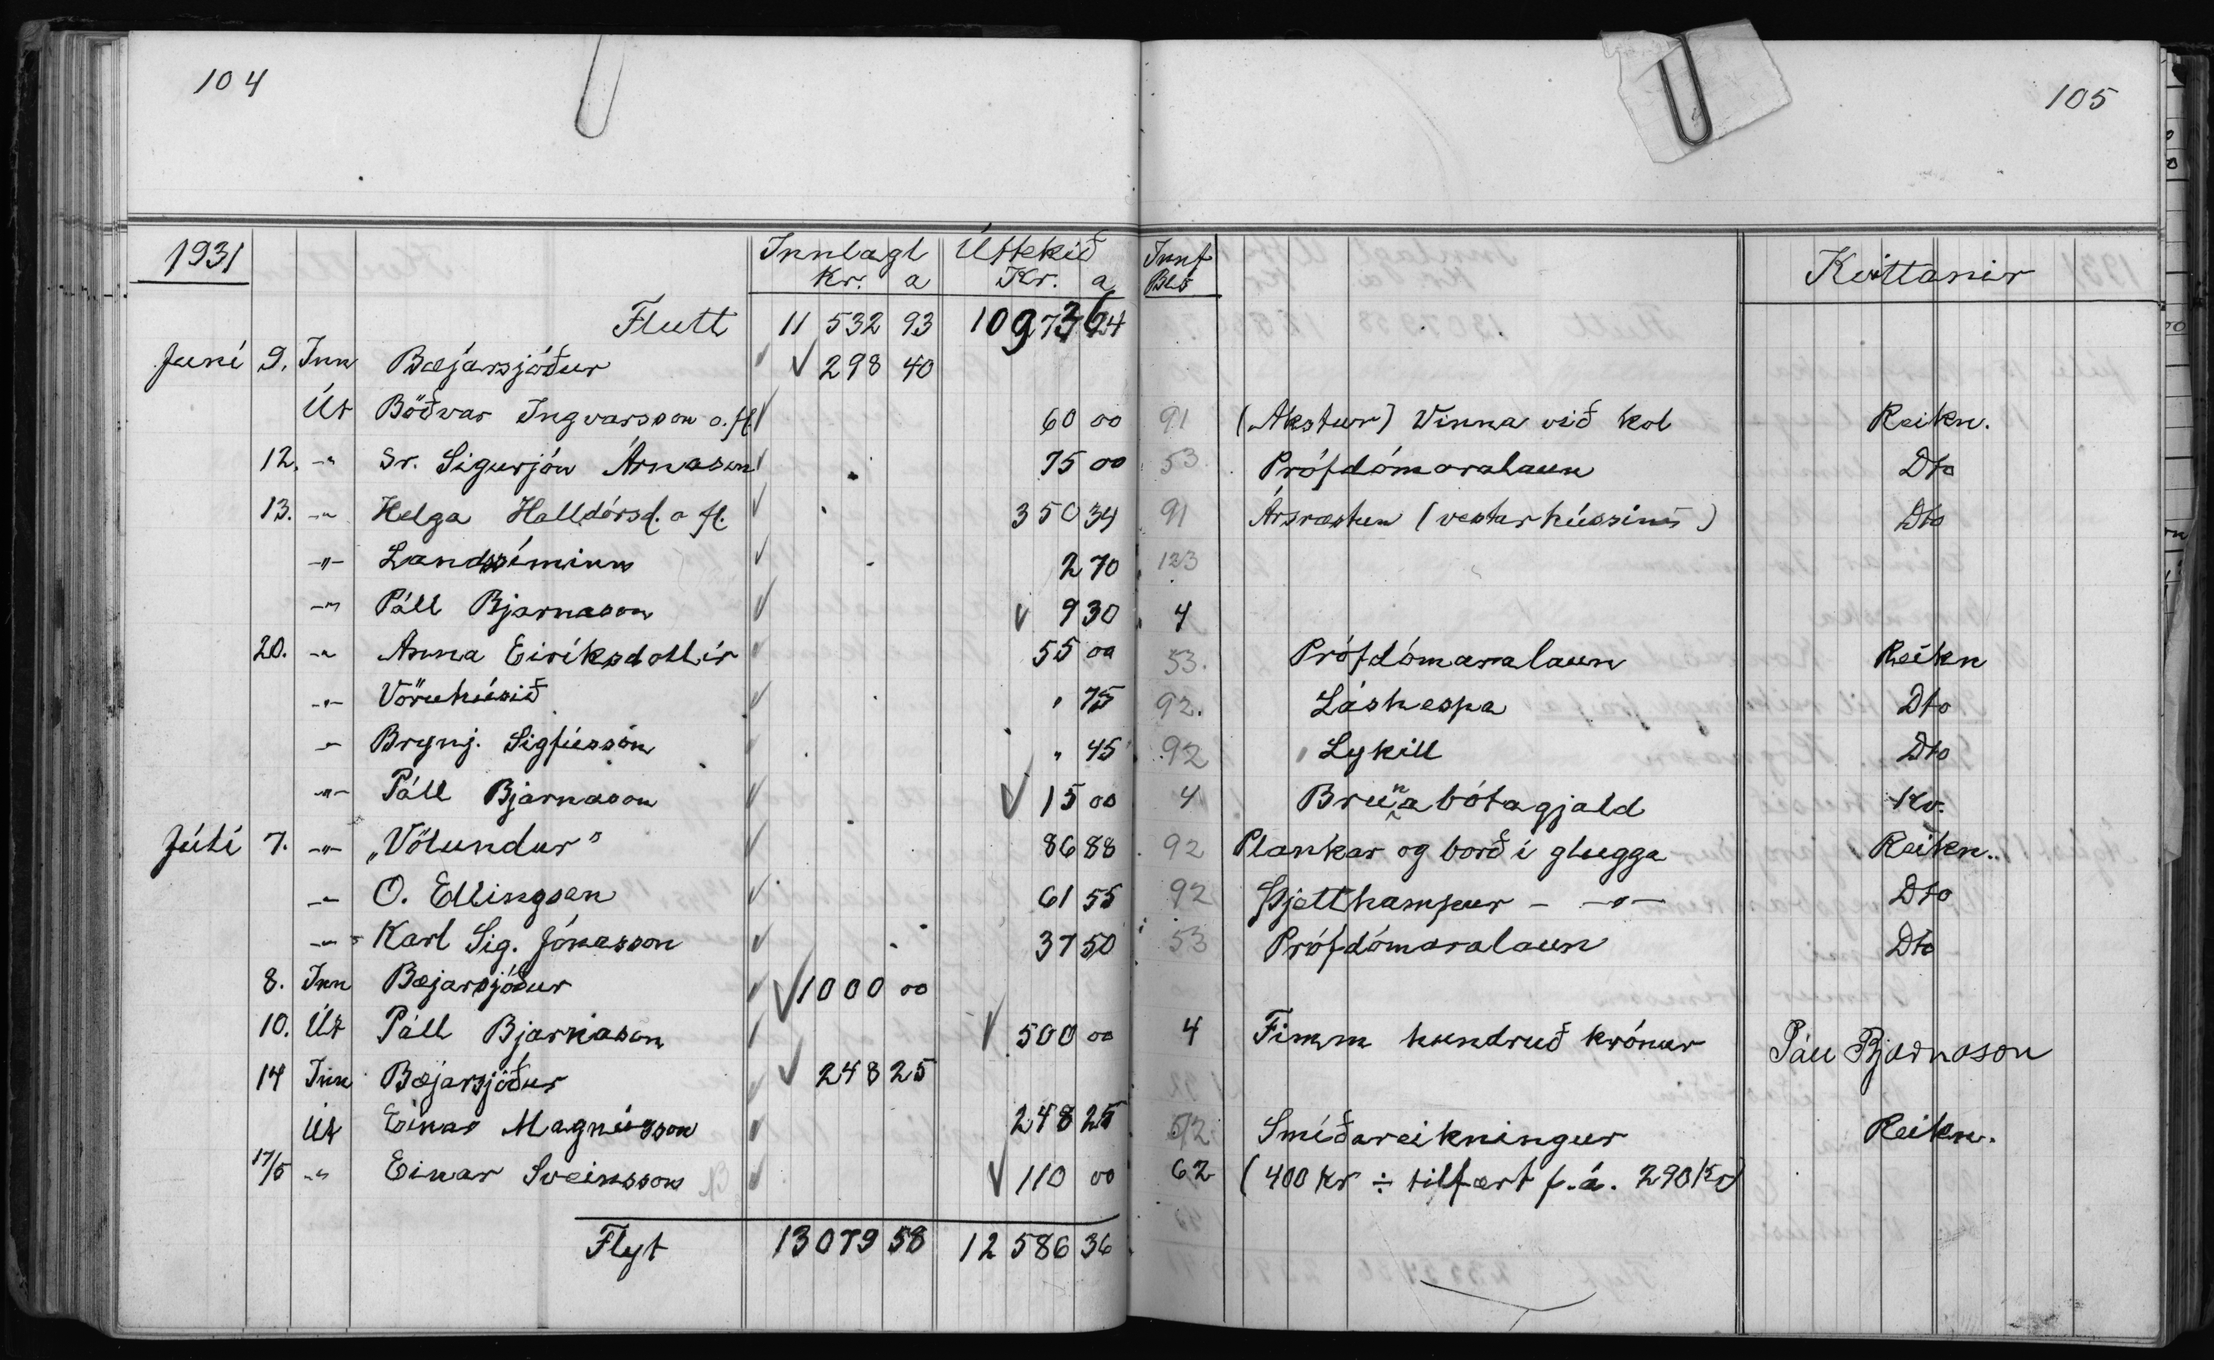 104
105
1931 Innlagt Úttekið Innf Kvittanir
Kr. a Kr. a Bls
Flutt 11 532 93 10973 64
Júní 9. Inn Bæjarsjóður 298 40
Út Böðvar Ingvarsson o. fl. 60 00 91 (Akstur) Vinna við kol Reikn.
12. -"- Sr. Sigurjón Árnason 75 00 53 Prófdómaralaun Dto
13. -"- Helga Halldórsd. o fl. 350 34 91 Ársræstun (vestarhússins) Dto
-"- Landssíminn 2 70 123
-"- Páll Bjarnason 9 30 4
20. -"- Anna Eiríksdottir 55 00 53. Prófdómaralaun Reikn
-"- Vöruhúsið " 75 92. Láshespa Dto
-"- Brynj. Sigfússon " 45 92 Lykill Dto
-"- Páll Bjarnason 15 00 4 Brunabótagjald Kv.
Júlí 7. -"- „Völundur" 86 88 92 Plankar og borð í glugga Reikn.
-"- O. Ellingsen 61 55 92 Stjatthampur - -"- Dto
-"- Karl Sig. Jónasson 37 50 53 Prófdómaralaun Dto
8. Inn Bæjarsjóður 1000 00
10. Út Páll Bjarnason 500 00 4 Fimm hundruð krónur Páll Bjarnason
14 Inn Bæjarsjóður 248 25
Út Einar Magnússon 248 25 92 Smíðareikningur Reikn.
17/5 -"- Einar Sveinsson 110 00 62 (400 kr ÷ tilfært f. á. 290 Kr)
Flyt 13079 58 12 586 36